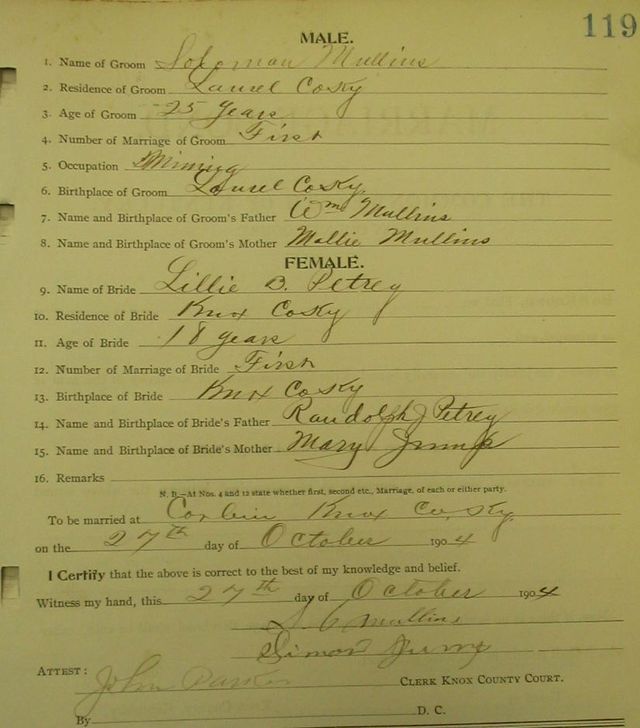 119
MALE.
1. Name of Groom Soloman Mullins
2. Residence of Groom Laurel Co Ky
3. Age of Groom 25 years
4. Number of Marriage of Groom First
5. Occupation Mining
6. Birthplace of Groom Laurel Co Ky.
7. Name and Birthplace of Groom's Father Wm Mullins
8. Name and Birthplace of Groom's Mother Mollie Mullins
FEMALE.
9. Name of Bride Lillie B. Petrey
10. Residence of Bride Knox Co Ky
11. Age of Bride 18 years
12. Number of Marriage of Bride First
13. Birthplace of Bride Knox Co Ky
14. Name and Birthplace of Bride's Father Randolph J Petrey
15. Name and Birthplace of Bride's Mother Mary Jump
16. Remarks
N. B.—At Nos. 4 and 12 state whether first, second etc., Marriage, of each or either party.
To be married at Corbin Knox Co, Ky.
on the 27th day of October 1904
I Certify that the above is correct to the best of my knowledge and belief.
Witness my hand, this 27th day of October 1904
Mullins
Simon Jump
ATTEST: John Parker CLERK KNOX COUNTY COURT.
By D. C.